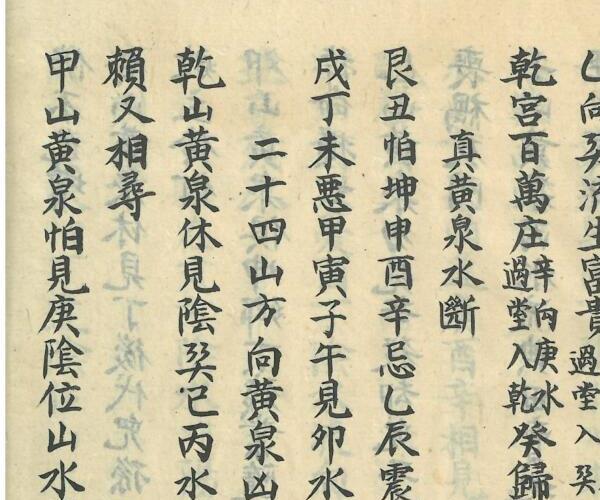 巳向巽流生富貴過堂入巽
乾宮百萬庄辛向庚水過堂入乾癸歸
真黄泉水斷
艮丑怕坤申酉辛忌乙辰震
戌丁未悪甲寅子午見卯水
二十四山方向黄泉凶
乾山黄泉休見陰巽巳丙水
賴又相尋
甲山黄泉怕見庚陰位山水